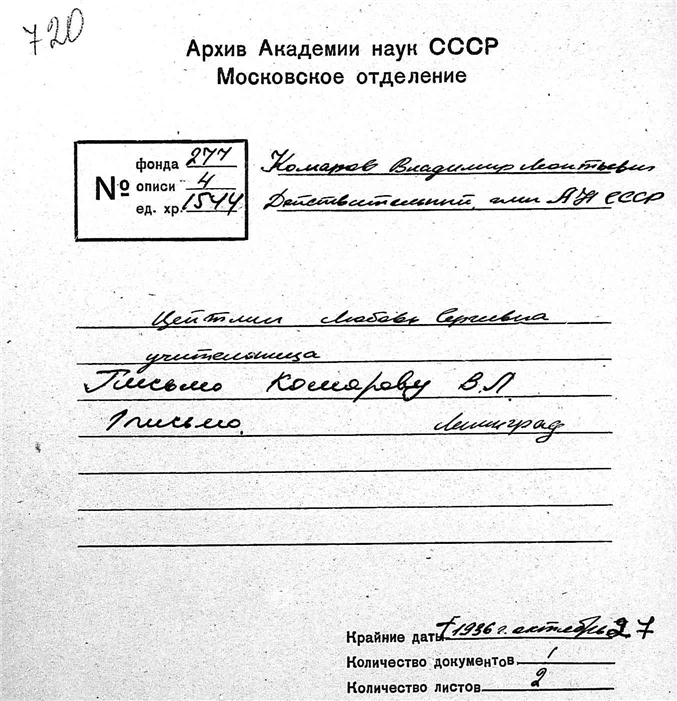 720
Архив Академии наук СССР
Московское отделение
№
фонда 277
описи 4
ед. хр. 1544
Комаров Владимир Леонтьевич
Действительный член АН СССР
Цейтлин Любовь Сергеевна
учительница
Письмо Комарову В.Л.
1 письмо. Ленинград
Крайние даты [1936 г. октябрь 27
Количество документов 1
Количество листов 2